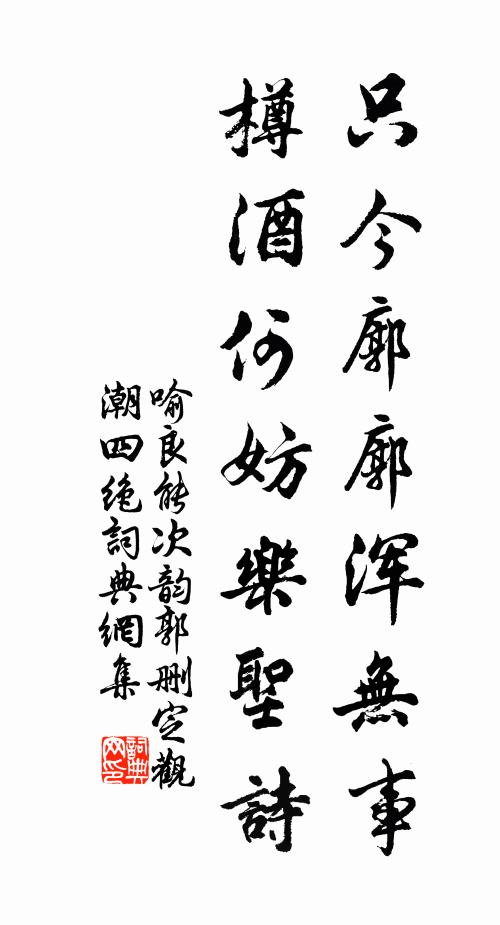 只今廓廓浑無事
樽酒何妨樂聖詩
喻良能次韵郭删定觀
潮四绝詞典網集
詞典
网印